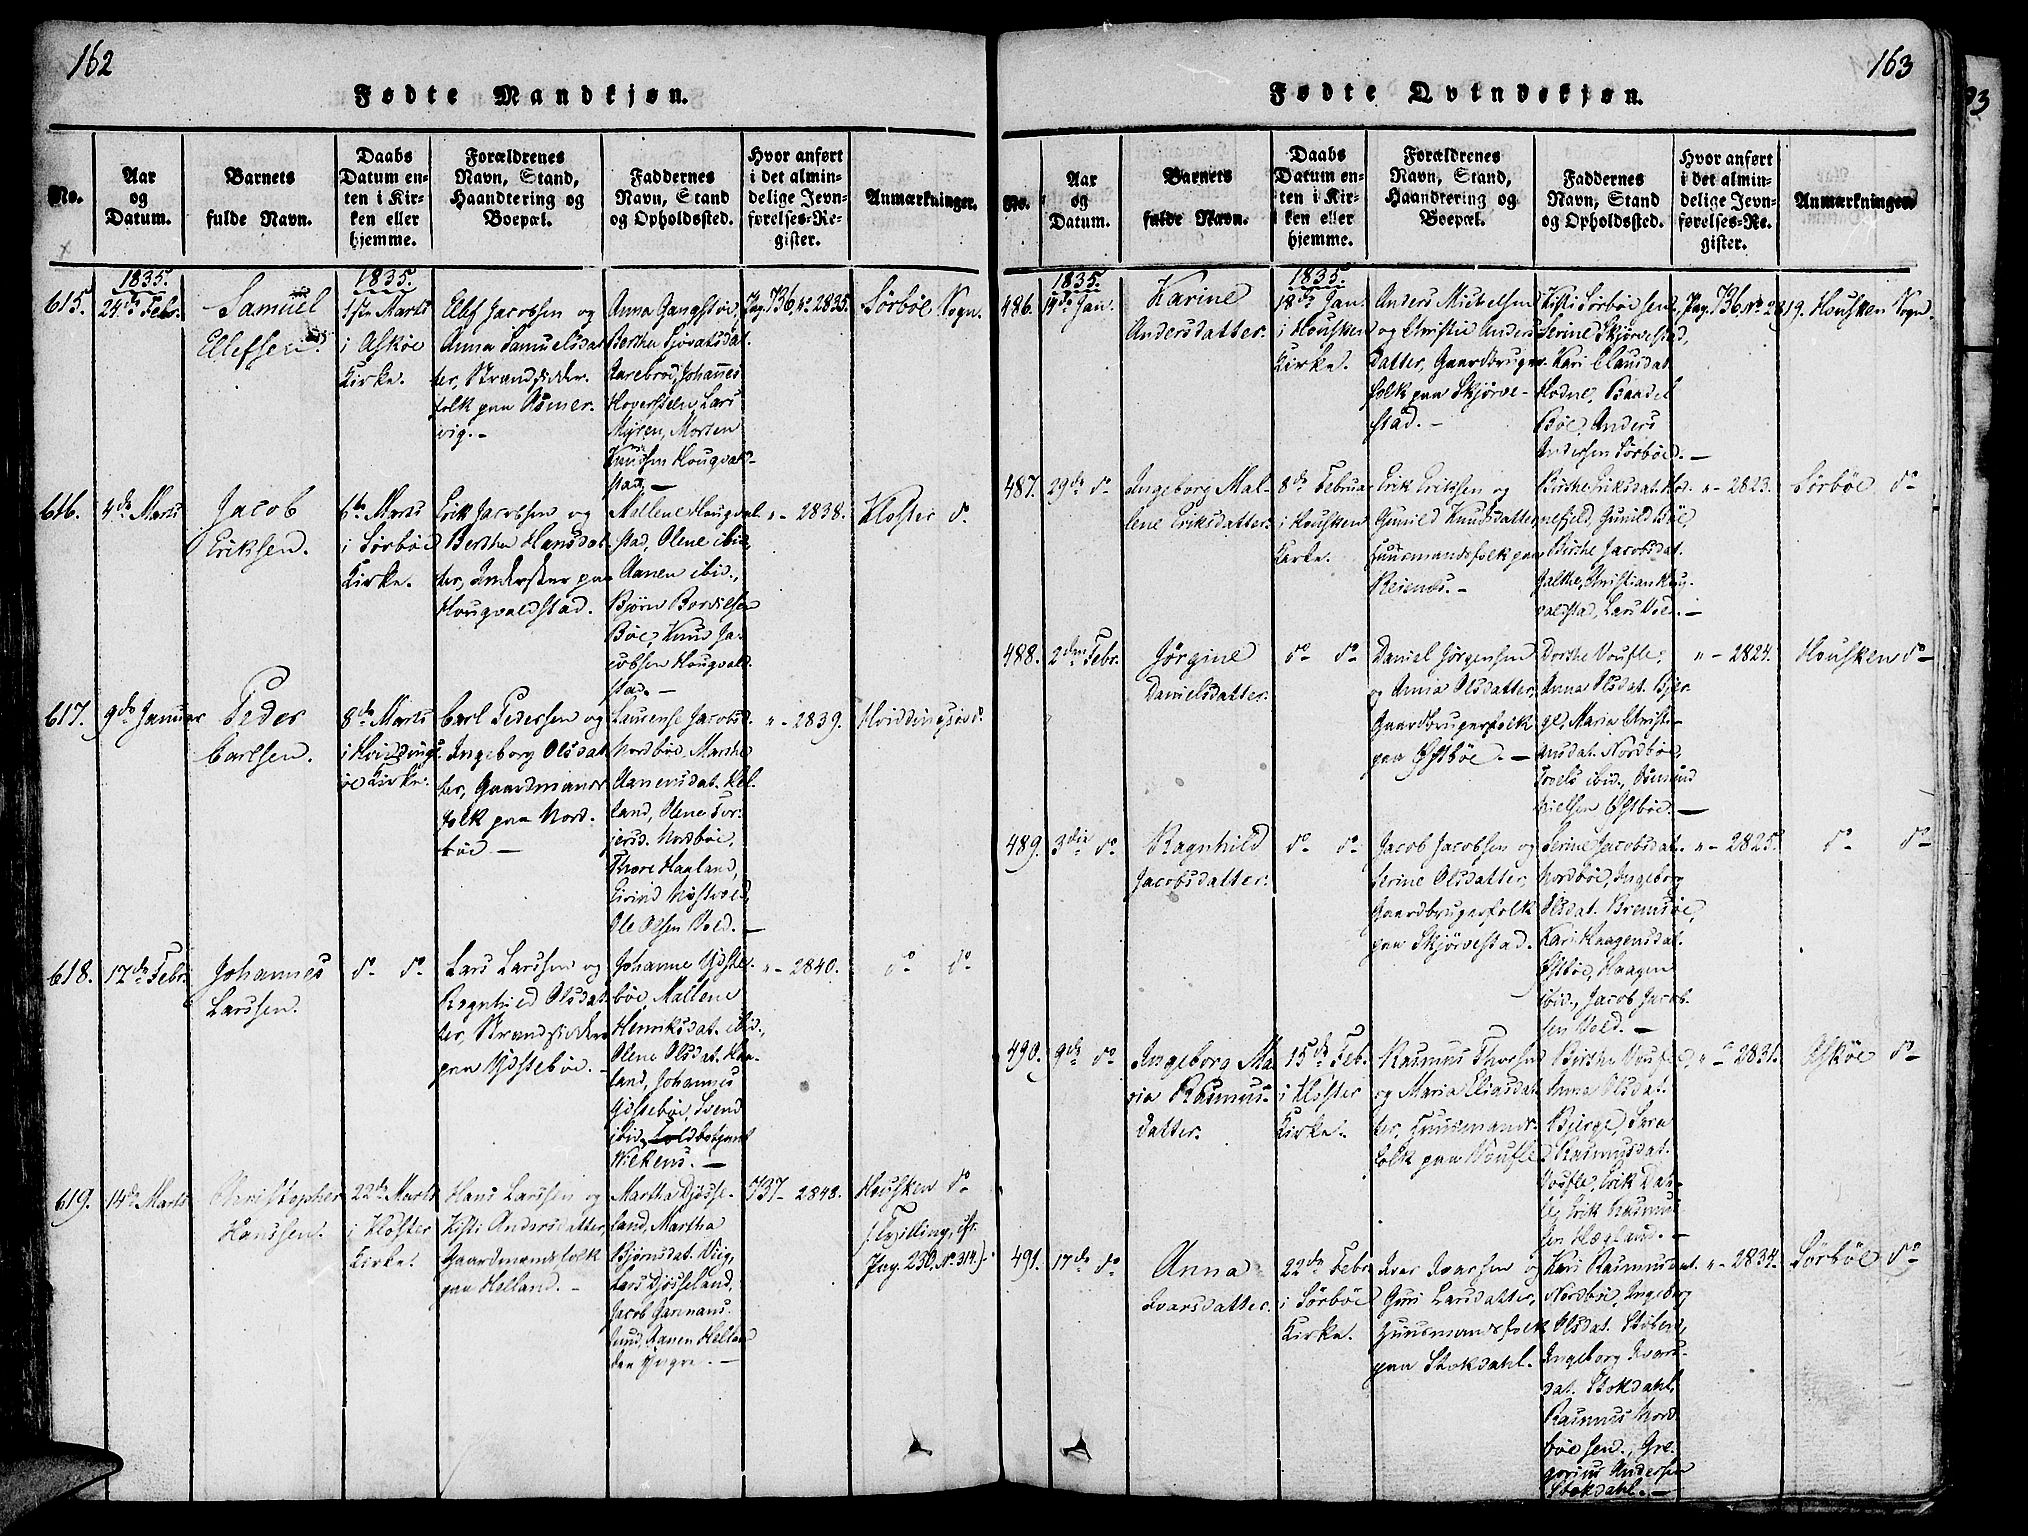 162
Fødte Mandkjøn.
No.
Aar
og
Datum.
Barnets
fulde Navn.
Daabs
Datum en-
ten i Kir-
ken eller
hjemme.
Forældrenes
Navn, Stand,
Haandtering og
Boepæl.
Faddernes
Navn, Stand
og Opholdssted.
Hvor anført
i det almin-
delige Jevn-
førelses-Re-
gister.
Anmærkninger.
615.
1835.
24de Febr.
Samuel
Ellefsen.
1835.
1ste Marts
i Askøe
Kirke.
Ellef Jacobsen og
Anna Samuelsdat-
ter, Strandsidder-
folk paa Asmer-
vig. -
Anna
Berthe
Aarebrod, Johannes
Lars
Myren, Morten
Knudsen Hougval-
stad. -
Pag. 736. No 2835.
Sørbøe Sogn.
616.
4de Marts
Jacob
Eriksen.
6te Marts
i Sørbøe
Kirke.
Erik Jacobsen og
Berthe Hansdat-
ter, Inderster paa
Hougvaldstad.
Mallene Hougval-
stad, Olene ibid.,
Aanen ibid.,
Bjørn
Bøe, Knud Ja-
cobsen Hougvald-
stad. -
" - 2838.
Kloster do
617.
9de Januar
Peder
Carlsen.
8de Marts
i Hvidings-
øe Kirke.
Carl Pedersen og
Ingeborg Olsdat-
ter, Gaardmands-
folk paa Nord-
bøe -
Laurense Jacobsd.
Nordbøe, Marthe
Aanensdat. Hel-
land, Olene Tor-
jersd. Nordbøe,
Thore Haaland,
Eivind
Ole Olsen Vold. -
" - 2839.
Hviddingsøe do
618.
17de Febr.
Johannes
Larssen.
do do
Lars Larssen og
Ragnhild Olsdat-
ter, Strandsiddere
paa Ydstebøe. -
Johanne Ydste-
bøe, Mallene
Henriksdat. ibid.,
Olene Olsdat. Haa-
land, Johannes
Ydstebøe, Svend
ibid., Toldbetjent
Wilkens. -
" - 2840.
do do
619.
14de Marts
Christopher
Hanssen.
22de Marts
i Kloster
Kirke.
Hans Larssen og
Kisti Andersdatter,
Gaardmandsfolk
paa Helland. -
Martha Gjesse-
land, Martha
Bjørnsdat. Viig,
Lars Gjesseland,
Jacob
Aanen Hellan
den Yngre. -
737 - 2848.
Housken do
(Tvilling, cfr.
Pag. 230. No 314.)
163
Fødte Qvindekjøn.
No.
Aar
og
Datum.
Barnets
fulde Navn.
Daabs
Datum en-
ten i Kir-
ken eller
hjemme.
Forældrenes
Navn, Stand,
Haandtering og
Boepæl.
Faddernes
Navn, Stand
og Opholdssted.
Hvor anført
i det almin-
delige Jevn-
førelses-Re-
gister.
Anmærkninger
486.
1835.
14de Jan.
Karine
Andersdatter.
1835.
18de Jan.
i Housken
Kirke.
Anders Mickelsen
og Christie Anders-
datter, Gaardbruger-
folk paa Skjørve-
stad. -
Kisti Sørbøe sen.,
Serine Skjørvestad,
Kari Clausdat.
Hodne, Baadel
Bøe, Anders
Andersen Sørbøe. -
Pag. 736. No 2819.
Housken Sogn.
487.
29de do
Ingeborg Mal-
lene Eriksdatter.
8de Februa
i Housken
Kirke.
Erik Eriksen og
Gunild Knudsdatter
Huusmandsfolk paa
Reienes. -
Birthe Eriksdat. Hod-
nefield, Gunild Bøe,
Birthe Jacobsdat.
Christian
Lars Vold. -
" - 2823.
Sørbøe do
488.
2den Febr.
Jørgine
Danielsdatter.
do do
Daniel Jørgensen
og Anna Olsdatter,
Gaardbrugerfolk
paa Østbøe. -
Dorthe Voufle,
Anna Olsdat. Bjer-
ge, Maria Christi-
ansdat. Nordbøe,
Troels ibid., Asmund
Nielsen Østbøe. -
" - 2824.
Housken do
489.
3die do
Ragnhild
Jacobsdatter.
do do
Jacob Jacobsen og
Serine Olsdatter,
Gaardbrugerfolk
paa Skjørvestad.
Serine Jacobsdat.
Nordbøe, Ingeborg
Olsdat. Bremsøe,
Kari Haagensdat.
Østbøe, Haagen
ibid., Jacob Jacob-
sen Vold. -
" - 2825.
do do
490.
9de do
Ingeborg Ma-
ria Rasmus-
datter.
15de Feb.
i Kloster
Kirke.
Rasmus Thorsen
og Maria Eliasdat-
ter, Huusmands-
folk paa Voufle
Birthe Voufle,
Anna Olsdat.
Bjerge, Sara
Rasmusdat.
Voufle, Erik Da-
Erik Rasmus-
sen Hægland. -
" - 2831.
Askøe do
491.
17de do
Anna
Ivarsdatter.
22de Febr.
i Sørbøe
Kirke.
Iver Ivarsen og
Guri Larsdatter,
Huusmandsfolk
paa Stokdahl. -
Kari Rasmusdat.
Nordbøe, Ingeborg
Olsdat.
Ingeborg Ivers-
dat. Stokdahl,
Rasmus Nord-
bøe sen., Gre-
gorius Andersen
Stokdahl. -
" - 2834.
Sørbøe do